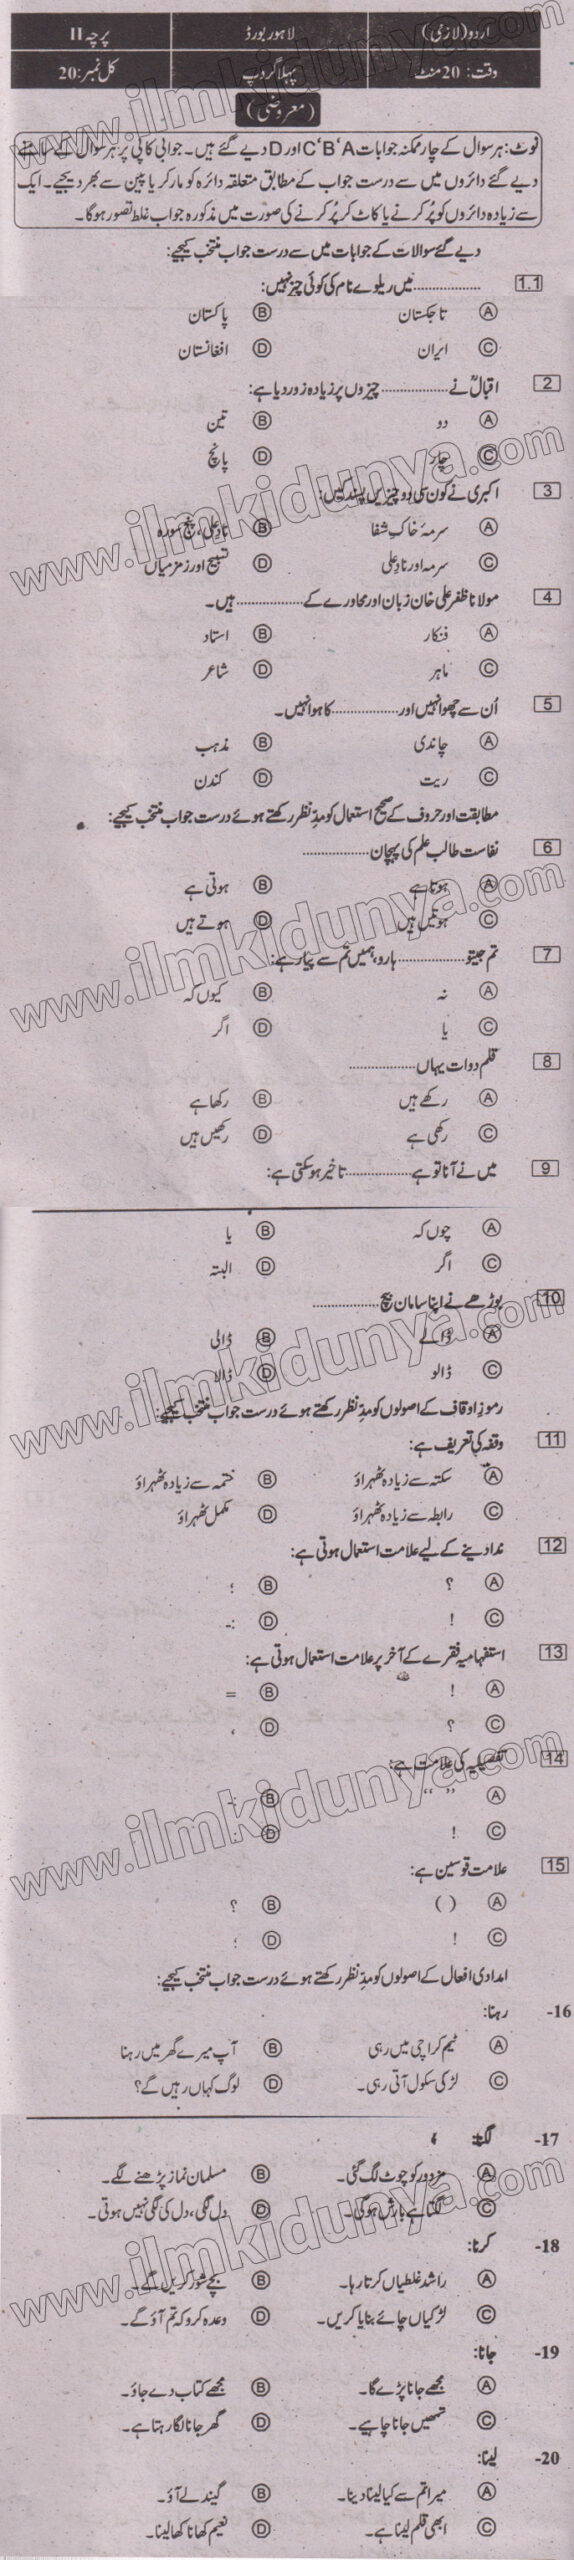 اردو (لازمی) لاہور بورڈ پرچہ II
وقت: 20 منٹ پہلا گروپ کل نمبر: 20
(معروضی)
نوٹ: ہر سوال کے چار ممکنہ جوابات A‘B‘C اور D دیے گئے ہیں۔ جوابی کاپی پر ہر سوال کے سامنے
دیے گئے دائروں میں سے درست جواب کے مطابق متعلقہ دائرہ کو مارکر یا پین سے بھر دیجیے۔ ایک
سے زیادہ دائروں کو پُر کرنے یا کاٹ کر پُر کرنے کی صورت میں مذکورہ جواب غلط تصور ہو گا۔
دیے گئے سوالات کے جوابات میں سے درست جواب منتخب کیجیے:
1.1 ................ میں ریلوے نام کی کوئی چیز نہیں:
A تاجکستان B پاکستان
C ایران D افغانستان
2 اقبالؒ نے ................ چیزوں پر زیادہ زور دیا ہے:
A دو B تین
C چار D پانچ
3 اکبری نے کون سی دو چیزیں پسند کیں:
A سرمہ، خاکِ شفا B نادِ علی، پنج سورہ
C سرمہ اور نادِ علی D تسبیح اور زمزمیاں
4 مولانا ظفر علی خان زبان اور محاورے کے ................ ہیں۔
A فنکار B استاد
C ماہر D شاعر
5 اُن سے چھوا نہیں اور ................ کا ہوا نہیں۔
A چاندی B مذہب
C ریت D کندن
مطابقت اور حروف کے صحیح استعمال کو مدِنظر رکھتے ہوئے درست جواب منتخب کیجیے:
6 نفاست طالب علم کی پہچان ................
A ہوتا ہے B ہوتی ہے
C ہوتیں ہیں D ہوتے ہیں
7 تم جیتو ................ ہارو، ہمیں تم سے پیار ہے:
A نہ B کیوں کہ
C یا D اگر
8 قلم دوات یہاں ................
A رکھے ہیں B رکھا ہے
C رکھی ہے D رکھیں ہیں
9 میں نے آنا تو ہے ................ تاخیر ہو سکتی ہے:
A چوں کہ B یا
C اگر D البتہ
10 بوڑھے نے اپنا سامان بیچ ................
A ڈالے B ڈالی
C ڈالو D ڈالا
رموزِ اوقاف کے اصولوں کو مدِنظر رکھتے ہوئے درست جواب منتخب کیجیے:
11 وقفہ کی تعریف ہے:
A سکتہ سے زیادہ ٹھہراؤ B ختمہ سے زیادہ ٹھہراؤ
C رابطہ سے زیادہ ٹھہراؤ D مکمل ٹھہراؤ
12 ندا دینے کے لیے علامت استعمال ہوتی ہے:
A ؟ B ؛
C ! D :-
13 استفہامیہ فقرے کے آخر پر علامت استعمال ہوتی ہے:
A ! B =
C ؟ D ،
14 تفصیلیہ کی علامت ہے:
A “ ” B :-
C ! D :
15 علامت قوسین ہے:
A ( ) B ؟
C ! D ؛
امدادی افعال کے اصولوں کو مدِنظر رکھتے ہوئے درست جواب منتخب کیجیے:
16- رہنا:
A ٹیم کراچی میں رہی B آپ میرے گھر میں رہنا
C لڑکی سکول آتی رہی۔ D لوگ کہاں رہیں گے؟
17- لگنا:
A مزدور کو چوٹ لگ گئی۔ B مسلمان نماز پڑھنے لگے۔
C لگتا ہے بارش ہو گی۔ D دل لگی، دل کی لگی نہیں ہوتی۔
18- کرنا:
A راشد غلطیاں کرتا رہا۔ B بچے شور کریں گے۔
C لڑکیاں چائے بنایا کریں۔ D وعدہ کرو کہ تم آؤ گے۔
19- جانا:
A مجھے جانا پڑے گا۔ B مجھے کتاب دے جاؤ۔
C تمھیں جانا چاہیے۔ D گھر جانا لگا رہتا ہے۔
20- لینا:
A میرا تم سے کیا لینا دینا۔ B گیند لے آؤ۔
C ابھی قلم لینا ہے۔ D نعیم کھانا کھا لینا۔
www.ilmkidunya.com
www.ilmkidunya.com
www.ilmkidunya.com
www.ilmkidunya.com
www.ilmkidunya.com
www.ilmkidunya.com